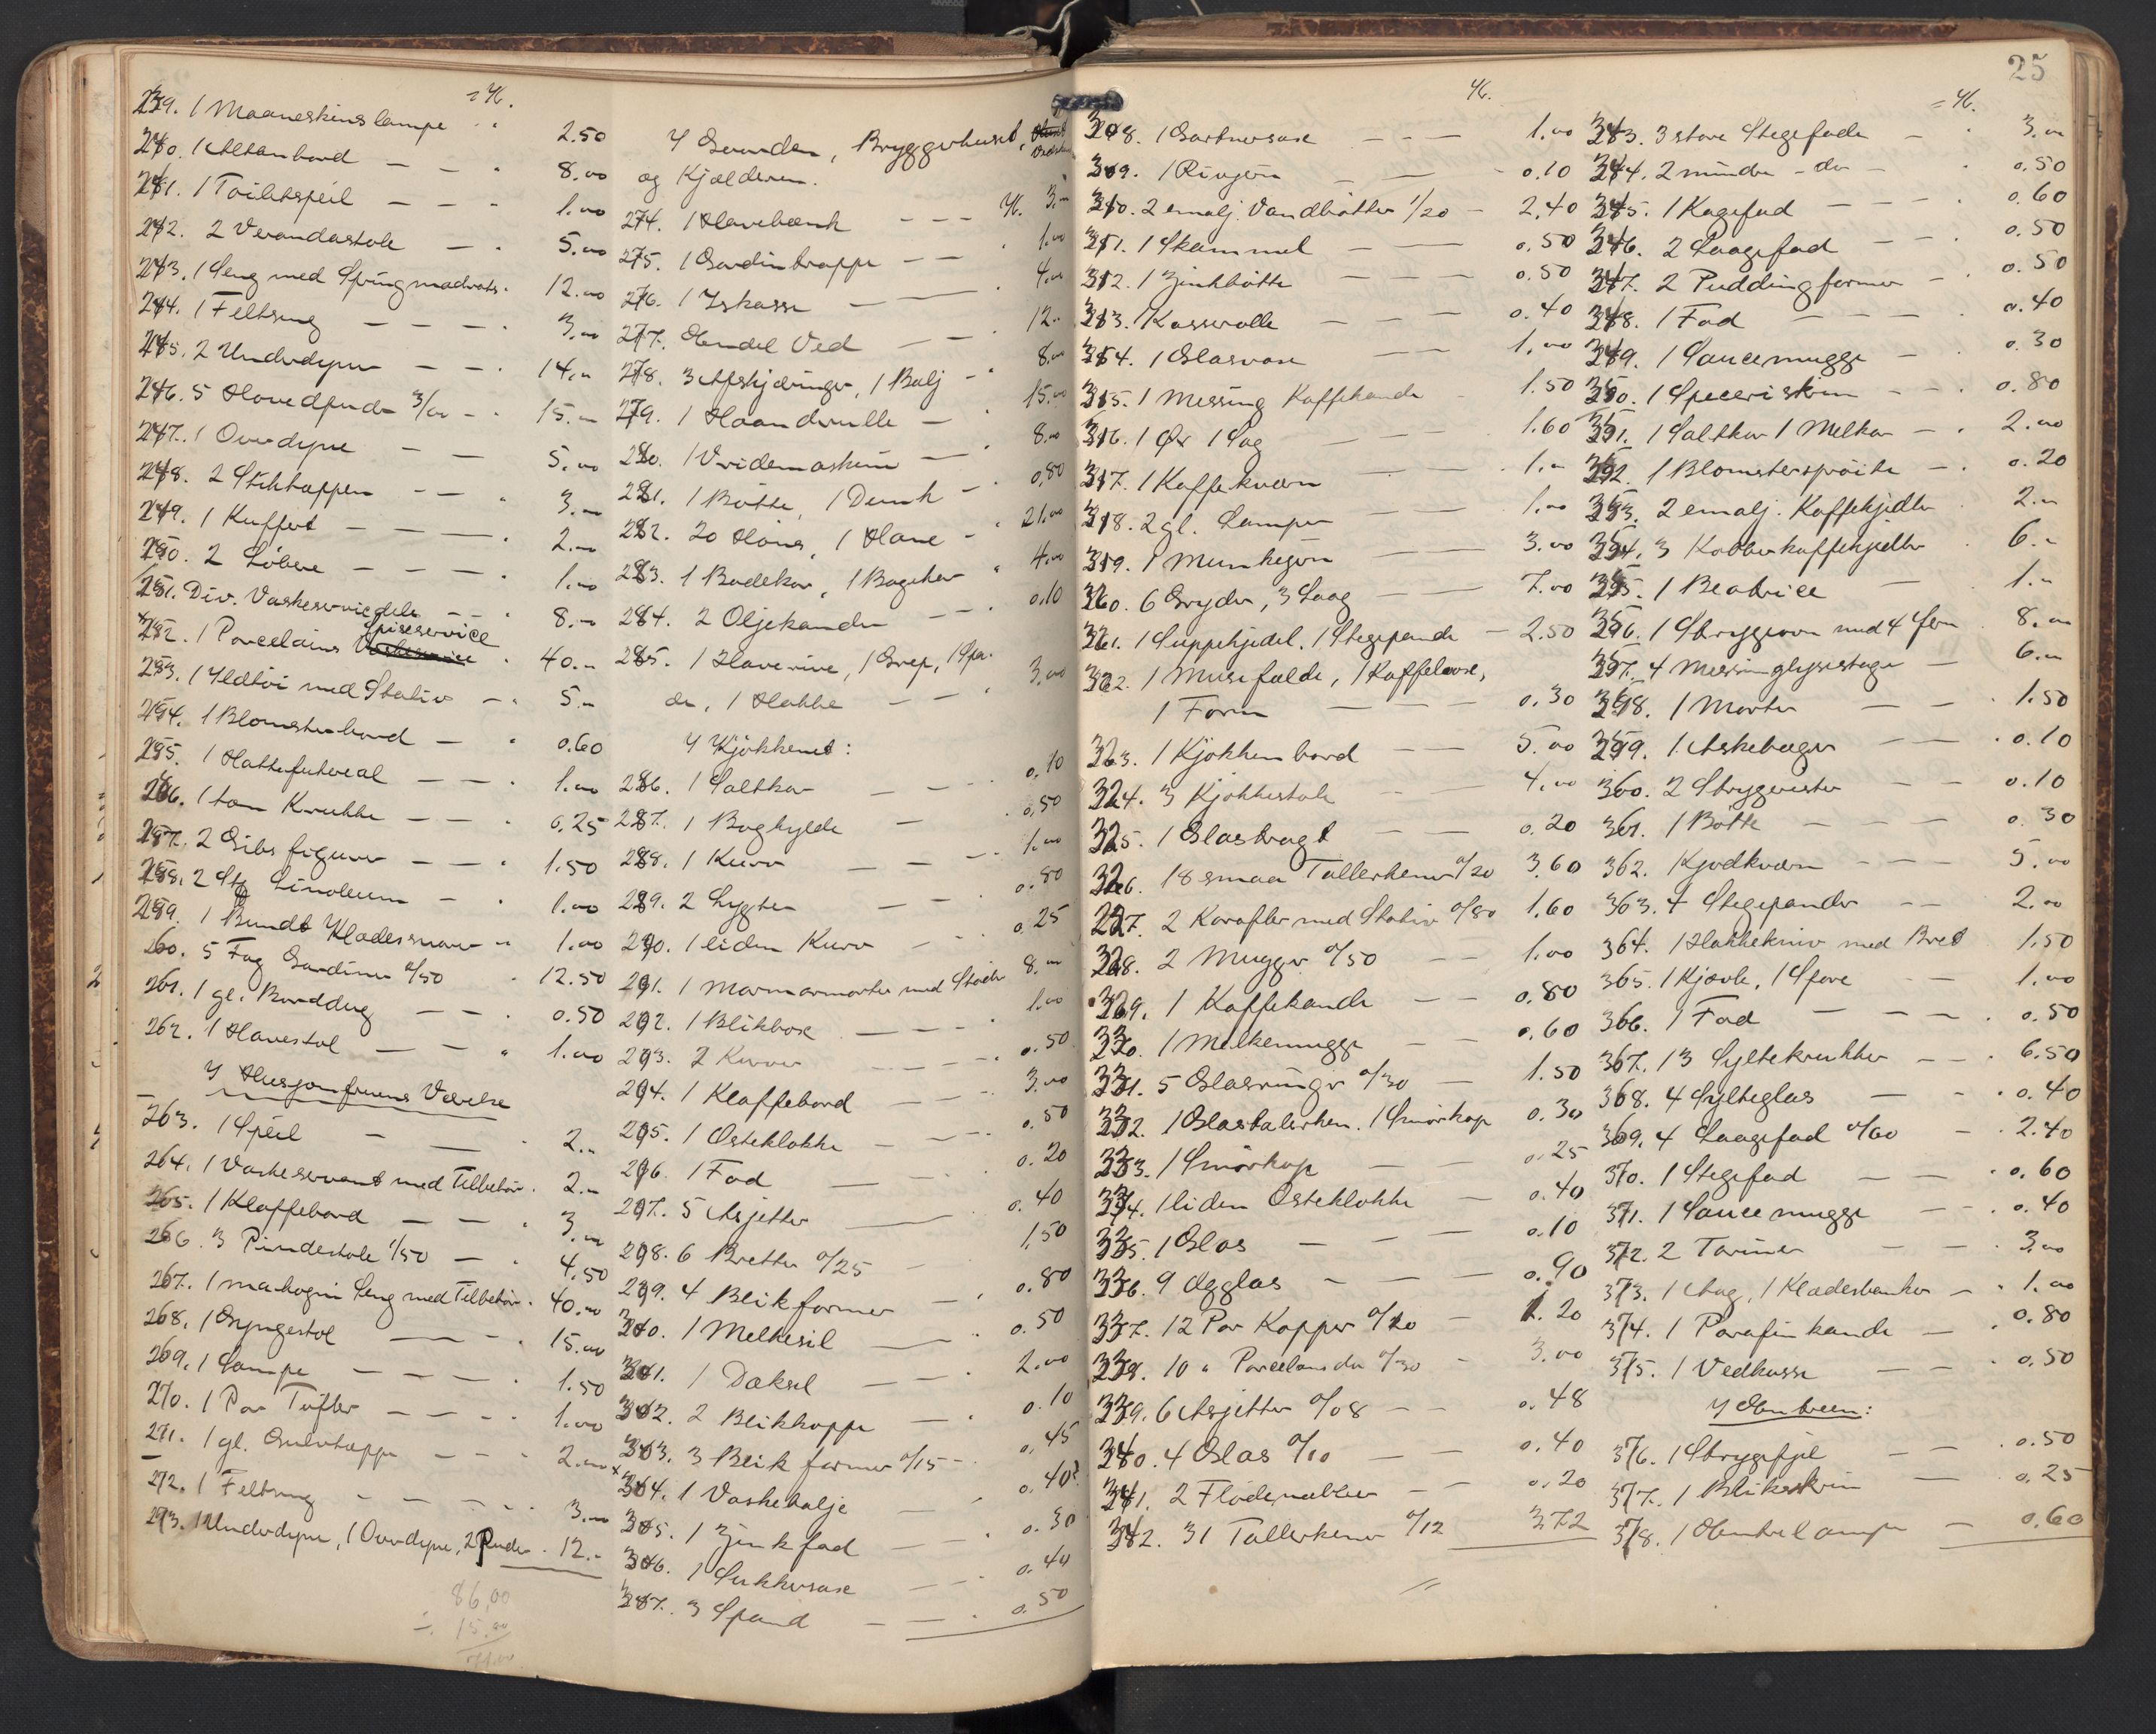 Kr.
239. 1 Maaneskinslampe " 2.50
240. 1 Altanbord — — " 8.00
241. 1 Toiletspeil — — - 1.00
242. 2 Verandastole — . 5.00
243. 1 Seng med Springmadrats. 12.00
244. 1 Feltseng — — — . 3.00
245. 2 Underdyner — — . 14.00
246. 5 Hovedpuder 3/00 - . 15.00
247. 1 Overdyne — — 5.00
248. 2 Stiktæpper — — " 3.00
249. 1 Kuffert — — . 2.00
250. 2 Løbere — — — . 1.00
251. Div. Vaskeservicedele — . 8.00
252. 1 Porcelains Spiseservice . 40.00
253. 1 Ildtøi med Stativ — . 5.00
254. 1 Blomsterbord — " 0.60
255. 1 Hattefuteral — — . 1.00
256. 1 tom Krukke — — . 0.25
257. 2 Gibsfigurer — — . 1.50
258. 2 Stk Linoleum — . 1.00
259. 1 Bundt Klædessnorer - " 1.00
260. 5 Fag Gardiner a/50 . 12.50
261. 1 gl. Borddug — — . 0.50
262. 1 Havestol — — " 1.00
I Husjomfruens Værelse
263. 1 Speil — — . 2.00
264. 1 Vaskeservant med Tilbehør . 2.00
265. 1 Klaffebord — — . 3.00
266. 3 Pindestole 1/50 — . 4.50
267. 1 mahogni Seng med Tilbehør . 40.00
268. 1 Gyngestol — — . 15.00
269. 1 Lampe — — — . 1.50
270. 1 Par Tøfler — — . 1.00
271. 1 gl. Gulvtæppe — — . 2.00
272. 1 Feltseng — — — . 3.00
273. 1 Underdyne, 1 Overdyne, 2 Puder . 12.-
86,00
÷ 15.00
71.00
I Gaarden, Bryggerhuset,
og Kjælderen.
274. 1 Havebænk — — — Kr. 3.00
275. 1 Gardintrappe — — . 1.00
276. 1 Iskasse — — . 4.00
277. Hendel Ved — — . 12.-
278. 3 Afskjæringer, 1 Balj - . 8.00
279. 1 Haandrulle — . 15.00
280. 1 Vridemaskin — . 8.00
281. 1 Bøtte, 1 Dunk — . 0,80
282. 20 Høns, 1 Hane — " 21.00
283. 1 Badekar, 1 Bagekar " 4.00
284. 2 Oljekander — — . 0.10
285. 1 Haverive, 1 Grep, 1 Spa-
de, 1 Hakke — — " 3.00
I Kjøkkenet:
286. 1 Saltkar — — . 0.10
287. 1 Boghylde — . 0,50
288. 1 Kurv — — . 1.00
289. 2 Lygter — — . 0.80
290. 1 liden Kurv — . 0.25
291. 1 Marmormorter med Støder 8.00
292. 1 Blikbox — — . 1.00
293. 2 Kurver — — . 0.50
294. 1 Klaffebord — — . 3.00
295. 1 Osteklokke — — . 0.50
296. 1 Fad — . 0.20
297. 5 Asjetter — . 0.40
298. 6 Bretter a/25 — 1,50
299. 4 Blikformer — . 0.80
300. 1 Melkesil — . 0.50
301. 1 Dæksel — — . 2.00
302. 2 Blikkopper — . 0.10
303. 3 Blikformer a/15 - 0.45
× 304. 1 Vaskebalje — . 0.40?
305. 1 Zinkfad — . 0.30
306. 1 Sukkersaxe — . 0.40
307. 3 Spand — — . 0.50
25
Kr.
308. 1 Gartnersaxe — — — 1.00
309. 1 Ringjern — — — 0.10
310. 2 emalj. Vandbøtter 1/20 — 2.40
311. 1 Skammel — — 0.50
312. 1 Zinkbøtte — — — 0.50
313. Kasserolle — — — 0.40
314. 1 Glasvase — — 1.00
315. 1 Messing Kaffekande - 1.50
316. 1 Øx 1 Sag — — 1.60
317. 1 Kaffekværn — . 1.-
318. 2 gl. Lamper — — 1.00
319. 1 Munkejern — — 3.00
320. 6 Gryder, 3 Laag — — 7.00
321. 1 Suppekjedel, 1 Stegepande — 2.50
322. 1 Musefælde, 1 Kaffeløse,
1 Form — — — 0.30
323. 1 Kjøkkenbord — — 5.00
324. 3 Kjøkkestole — — 4.00
325. 1 Glastragt — — 0.20
326. 18 smaa Tallerkener a/20 3.60
327. 2 Karafler med Stativ a/80 1.60
328. 2 Mugger a/50 — — 1.00
329. 1 Kaffekande — — 0.80
330. 1 Melkemugge — — 0.60
331. 5 Glasringe a/30 — 1.50
332. 1 Glastalerken. 1 Smørkop 0.30
333. 1 Smørkop — — 0.25
334. 1 liden Osteklokke — 0.40
335. 1 Glas — — — 0.10
336. 9 Ægglas — — — 0.90
337. 12 Par Kopper a/10 — 1.20
338. 10 " Porcelæns do a/30 - 3.00
339. 6 Asjetter a/08 — — 0.48
340. 4 Glas a/10 — 0.40
341. 2 Flødemuller — — 0.20
342. 31 Tallerkener a/12 3.72
Kr.
343. 3 store Stegefade — . 3.00
344. 2 mindre - do — . 0.50
345. 1 Kagefad — — — . 0.60
346. 2 Laagefad — — . 0.50
347. 2 Puddingformer — . 0.50
348. 1 Fad — — — . 0.40
349. 1 Saucemugge — . 0.30
350. 1 Speceriskrin — — . 0.80
351. 1 Saltkar 1 Melkar — . 2.00
352. 1 Blomstersprøite — . 0.20
353. 2 emalj. Kaffekjedler . 2.00
354. 3 Kobberkaffekjedler . 6.-
355. 1 Beatrice — . 1.-
356. 1 Strygeovn med 4 Jern . 8.00
357. 4 Messinglysestager — 6.00
358. 1 Morter — — . 1.50
359. 1 Askebæger — — . 0.10
360. 2 Strygerister — — 0.10
361. 1 Bøtte — — — 0.30
362. Kjødkværn — — — 5.00
363. 4 Stegepander — — 2.00
364. 1 Hakkekniv med Bret 1.50
365. 1 Kjævle, 1 Spore — 1.00
366. 1 Fad — — — . 0.50
367. 13 Syltekrukker — — . 6.50
368. 4 Sylteglas — — . 0.40
369. 4 Laagefad a/60 — . 2.40
370. 1 Stegefad — — . 0.60
371. 1 Saucemugge — — . 0.40
372. 2 Tariner — — . 3.00
373. 1 Aag, 1 Klædesbanker — . 1.00
374. 1 Parafinkande — . 0.80
375. 1 Vedkasse — — . 0.50
I Gangen:
376. 1 Strygefjel — — . 0.50
377. 1 Blikskrin — 0.25
378. 1 — 0.60